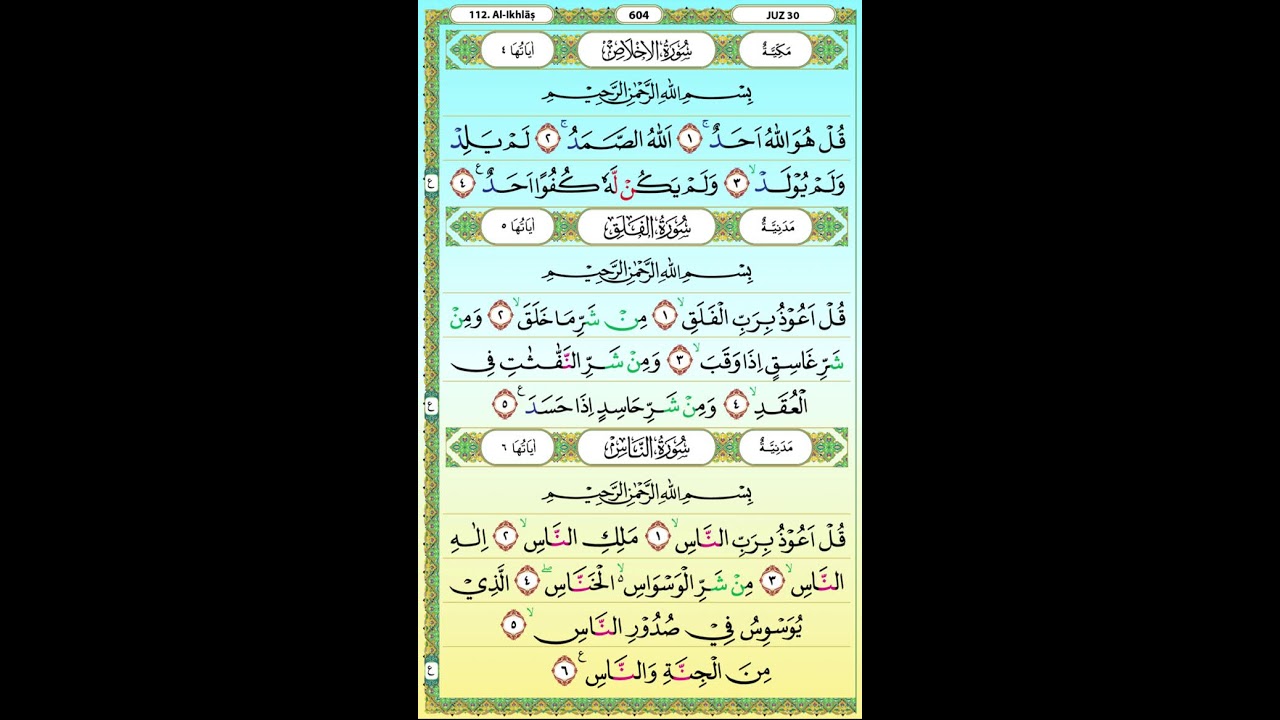 112. Al-Ikhlāṣ 604 JUZ 30
مَكِّيَّةٌ سُوْرَةُ الْاِخْلَاصِ اٰيَاتُهَا ٤
بِسْمِ اللهِ الرَّحْمٰنِ الرَّحِيْمِ
قُلْ هُوَ اللهُ اَحَدٌۚ ١ اَللهُ الصَّمَدُۚ ٢ لَمْ يَلِدْ
وَلَمْ يُوْلَدْۙ ٣ وَلَمْ يَكُنْ لَّهٗ كُفُوًا اَحَدٌ ࣖ ٤
ع
مَدَنِيَّةٌ سُوْرَةُ الْفَلَقِ اٰيَاتُهَا ٥
بِسْمِ اللهِ الرَّحْمٰنِ الرَّحِيْمِ
قُلْ اَعُوْذُ بِرَبِّ الْفَلَقِۙ ١ مِنْ شَرِّ مَا خَلَقَۙ ٢ وَمِنْ
شَرِّ غَاسِقٍ اِذَا وَقَبَۙ ٣ وَمِنْ شَرِّ النَّفّٰثٰتِ فِى
الْعُقَدِۙ ٤ وَمِنْ شَرِّ حَاسِدٍ اِذَا حَسَدَ ࣖ ٥
ع
مَدَنِيَّةٌ سُوْرَةُ النَّاسِ اٰيَاتُهَا ٦
بِسْمِ اللهِ الرَّحْمٰنِ الرَّحِيْمِ
قُلْ اَعُوْذُ بِرَبِّ النَّاسِۙ ١ مَلِكِ النَّاسِۙ ٢ اِلٰهِ
النَّاسِۙ ٣ مِنْ شَرِّ الْوَسْوَاسِ ەۙ الْخَنَّاسِۖ ٤ الَّذِيْ
يُوَسْوِسُ فِيْ صُدُوْرِ النَّاسِۙ ٥
مِنَ الْجِنَّةِ وَالنَّاسِ ࣖ ٦
ع